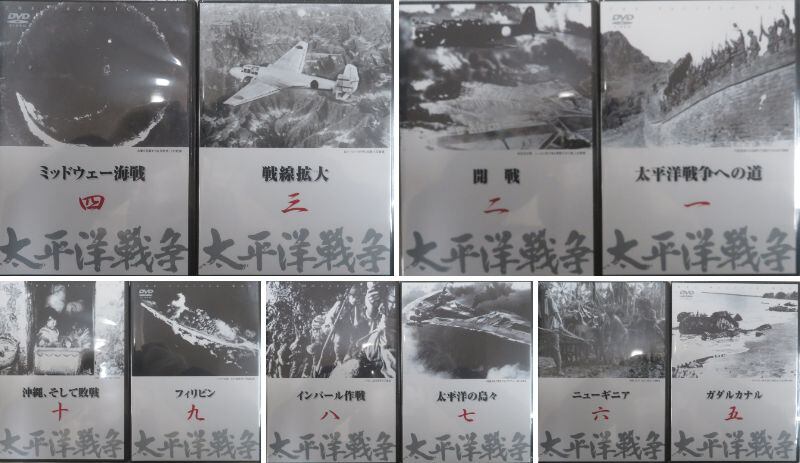 DVD
ミッドウェー海戦
四
太平洋戦争
戦線拡大
三
太平洋戦争
開戦
二
太平洋戦争
DVD
太平洋戦争への道
一
太平洋戦争
沖縄、そして敗戦
十
太平洋戦争
DVD
フィリピン
九
太平洋戦争
インパール作戦
八
太平洋戦争
太平洋の島々
七
太平洋戦争
ニューギニア
六
太平洋戦争
DVD
ガダルカナル
五
太平洋戦争